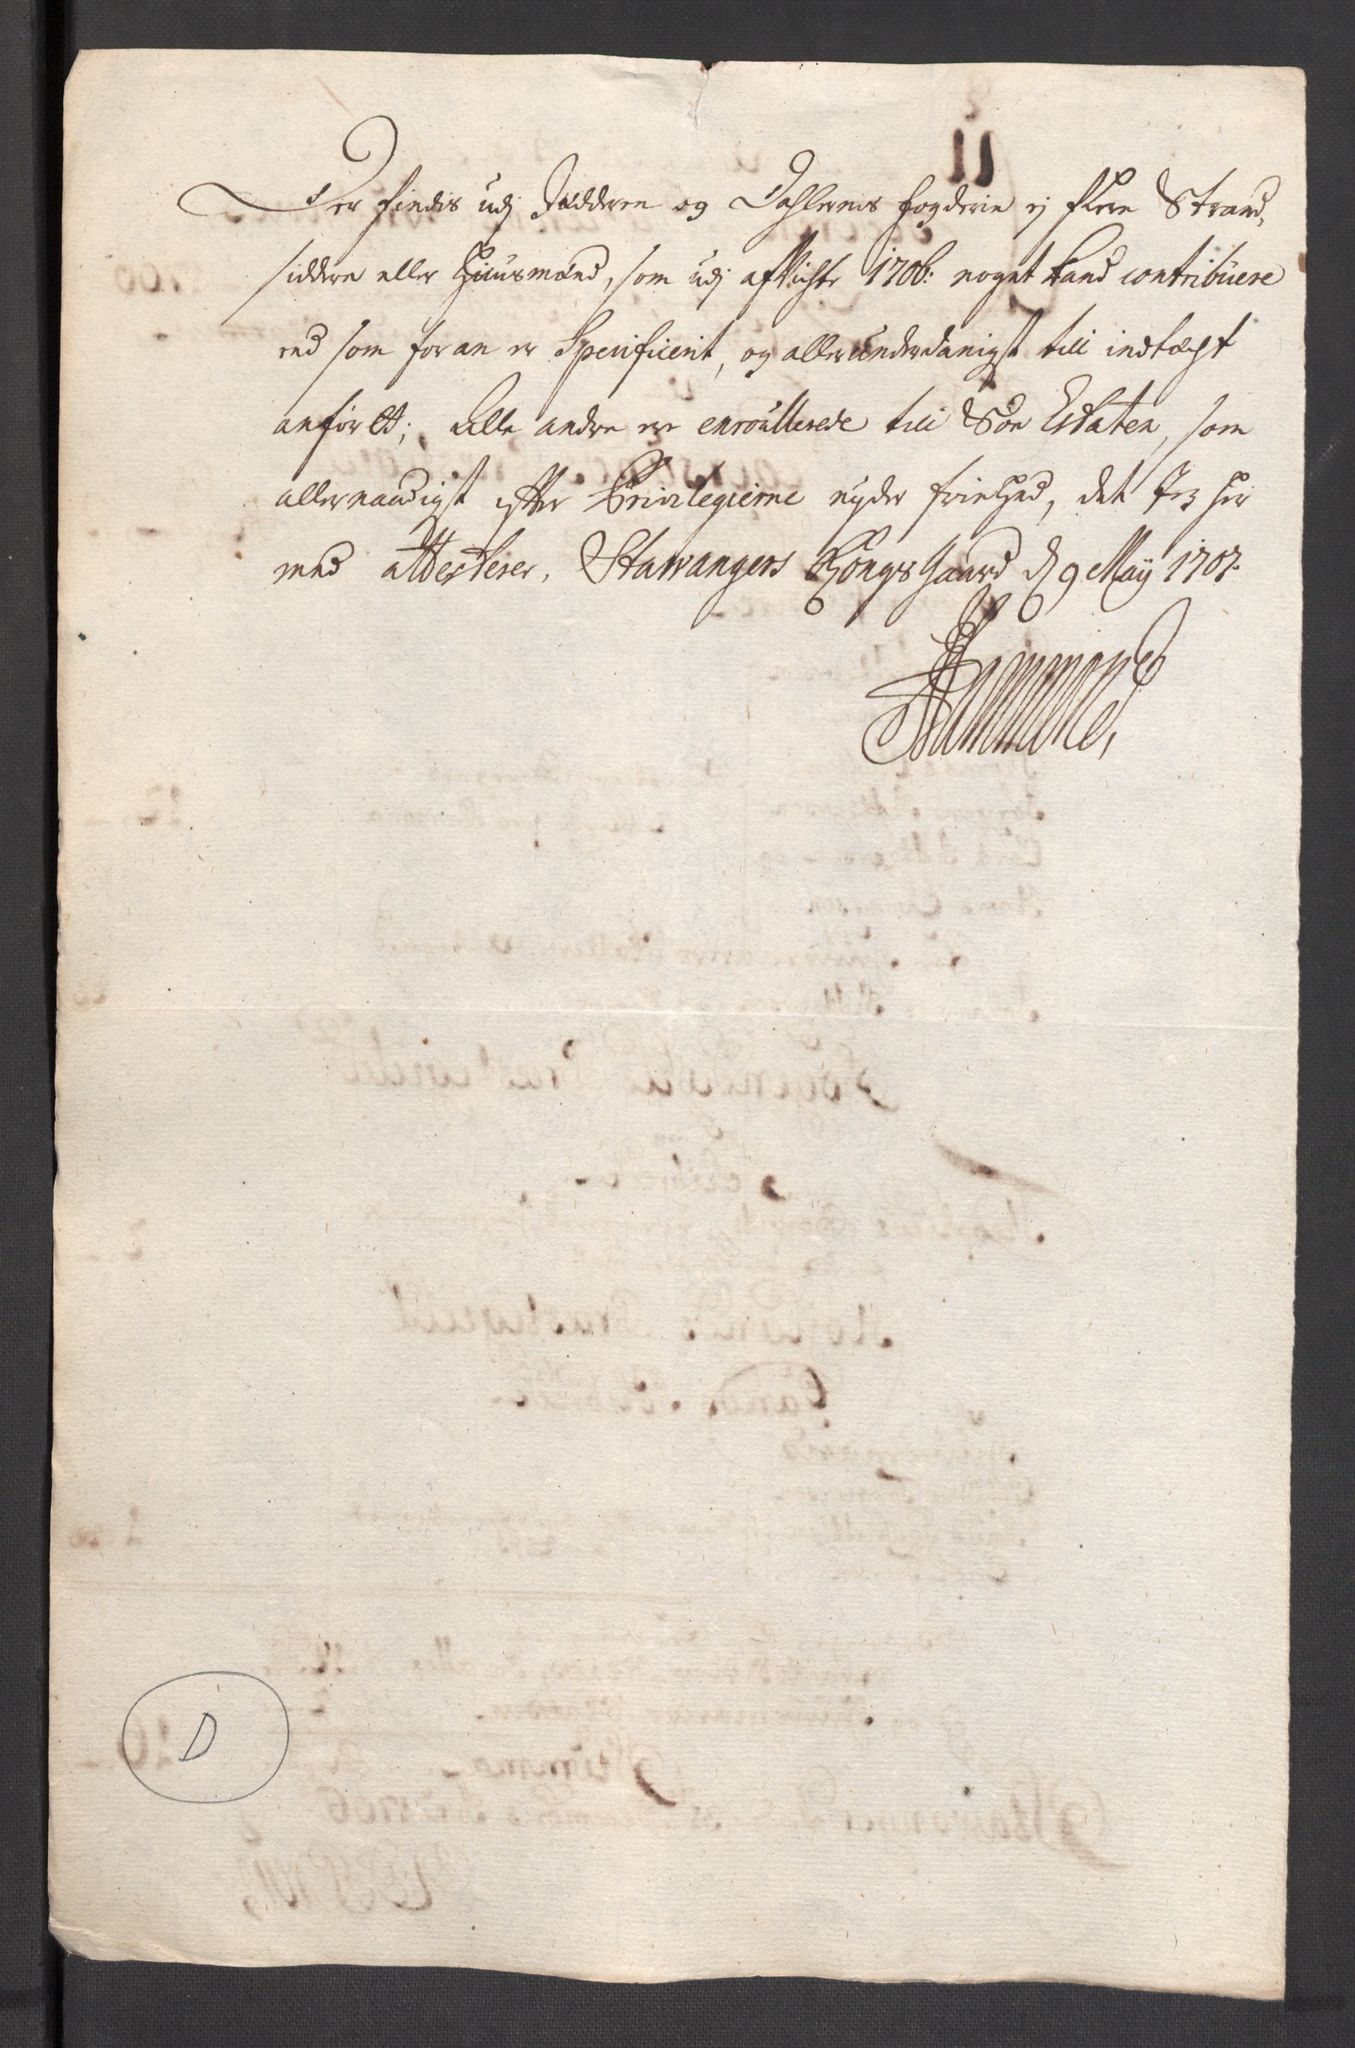 Der findes udj Jædderen og Dahlernes fogderie ej flere Strand,
siddere eller Huusmænd, som udj afvichte 1706: noget kand contribuere
end som foran er Specificerit, og allerunderdanigst till indtægt
anførtt; Alle andre ere enroullerede till Søe Estaten, som
allernaadigst efter Privilegierne nyder friehed, det Jeg her
med attesterer, Stawangers Kongs Gaard d 9 Maÿ 1707.
D